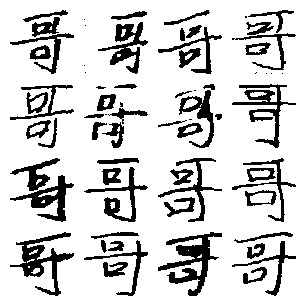 哥哥哥哥
哥哥哥哥
哥哥哥哥
哥哥哥哥